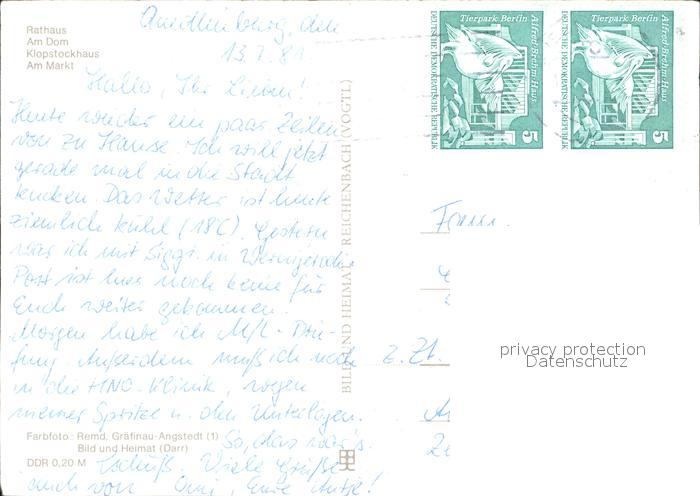 Rathaus
Am Dom
Klopstockhaus
Am Markt
Quedlinburg, den
13.7.8
Hallo, Ihr Lieben!
Heute wieder ein paar Zeilen
von zu Hause. Ich will jetzt
gerade mal in die Stadt
gucken. Das Wetter ist heute
ziemlich kühl (18C). Gestern
war ich mit Siggi in Wernigerode
Post ist hier noch keine für
Euch weiter gekommen.
Morgen habe ich M/L-Prü-
fung. Außerdem muß ich noch
in die HNO-Klinik, wegen
meiner Spritze u. den Unterlagen.
So, das war's.
Tschüß. Viele Grüße
auch von Omi, Eure Antje!
Farbfoto: Remd, Gräfinau-Angstedt (1)
Bild und Heimat (Darr)
DDR 0,20 M
BILD UND HEIMAT REICHENBACH (VOGTL)
Tierpark Berlin Alfred-Brehm-Haus
DEUTSCHE DEMOKRATISCHE REPUBLIK
5
Tierpark Berlin Alfred-Brehm-Haus
DEUTSCHE DEMOKRATISCHE REPUBLIK
5
Fam.
z. Zt.
privacy protection
Datenschutz